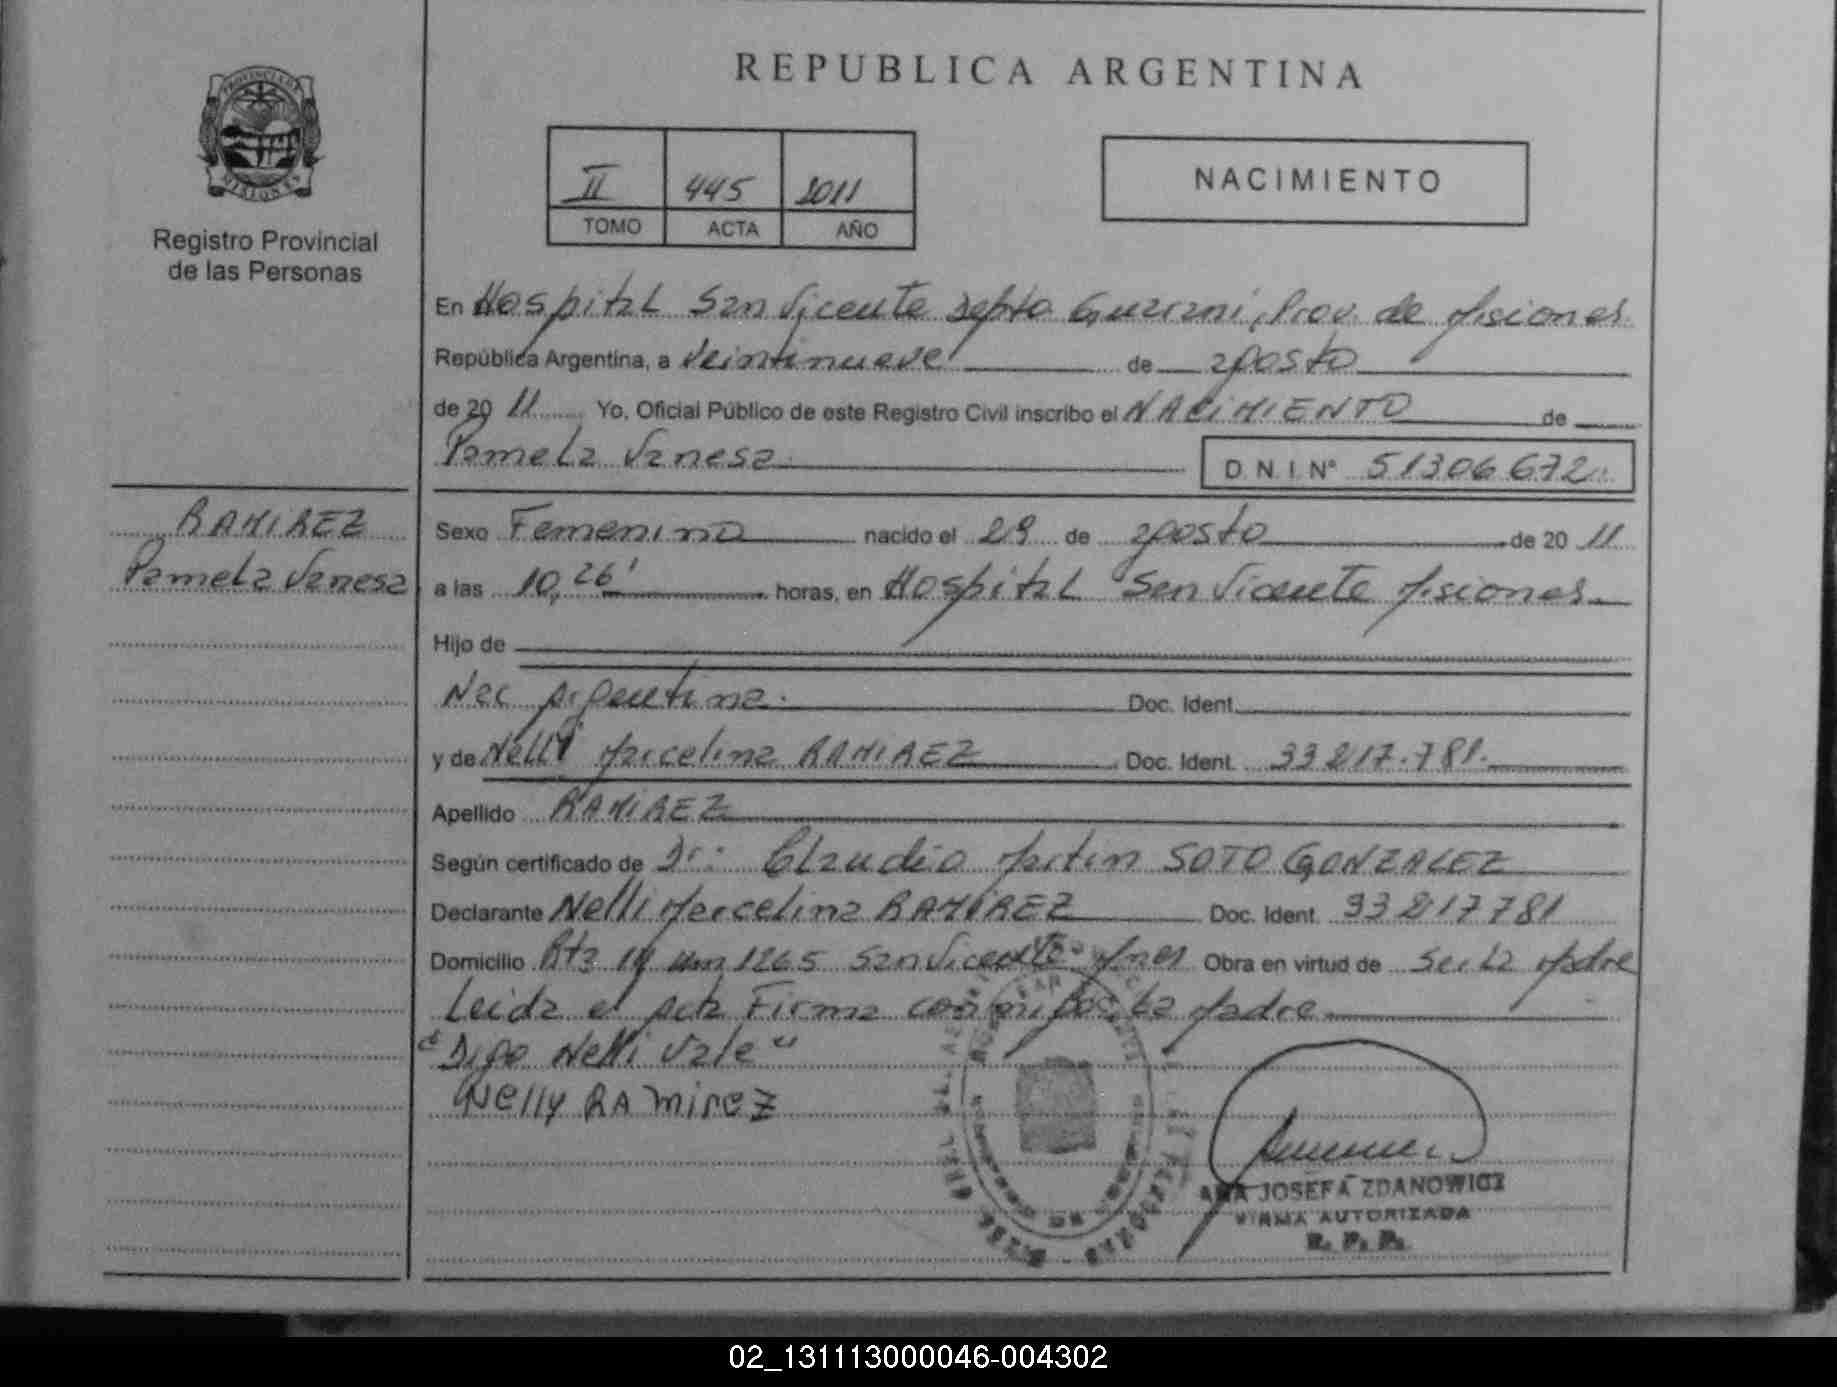 REPUBLICA ARGENTINA
PROVINCIA DE
MISIONES
Registro Provincial
de las Personas
II 445 2011
TOMO ACTA AÑO
NACIMIENTO
En Hospital San Vicente Depto Guarani, Prov. de Misiones
República Argentina, a Veintinueve de agosto
de 20 11 Yo, Oficial Público de este Registro Civil inscribo el NACIMIENTO de
Pamela Vanesa D.N.I. Nº 51306672
RAMIREZ
Pamela Vanesa
Sexo Femenino nacido el 29 de agosto de 20 11
a las 10,26' horas, en Hospital San Vicente Misiones
Hijo de
Nac Argentina. Doc. Ident.
y de Nelli Marcelina RAMIREZ Doc. Ident. 33217.781.
Apellido RAMIREZ
Según certificado de Dr: Claudio Martin SOTO GONZALEZ
Declarante Nelli Marcelina RAMIREZ Doc. Ident. 33217781
Domicilio Rta 14 Km 1265 San Vicente Mnes Obra en virtud de Ser la Madre
Leida el Acta Firma conmigo, la Madre
"Digo Nelli Vale"
Nelly RAMirez
ANA JOSEFA ZDANOWICZ
FIRMA AUTORIZADA
R. P. P.
02_131113000046-004302